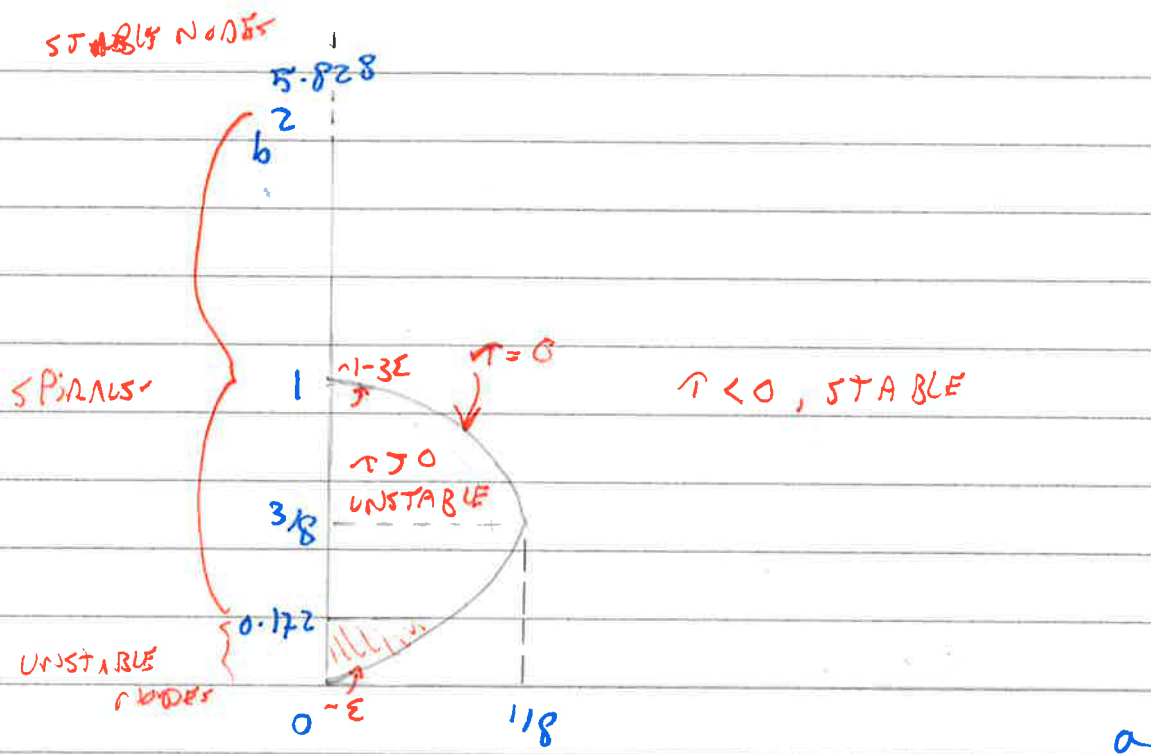 STABLE NODES
5.828
b² 
~1-3ε
τ=0
SPIRALS
1
τ<0, STABLE
τ>0
UNSTABLE
3/8
0.172
UNSTABLE
NODES
0
~ε
1/8
a